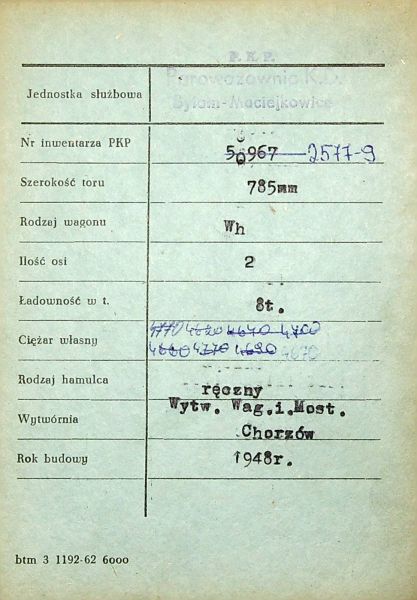 P. K. P.
Parowozownia K.D.
Jednostka służbowa
Bytom-Maciejkowice
Nr inwentarza PKP 50967 2577-9
Szerokość toru 785mm
Rodzaj wagonu Wh
Ilość osi 2
Ładowność w t. 8t.
4770 4620 4640 4700
Ciężar własny
4660 4770 4690 4670
Rodzaj hamulca ręczny
Wytw. Wag.i.Most.
Wytwórnia
Chorzów
Rok budowy 1948r.
btm 3 1192-62 6000